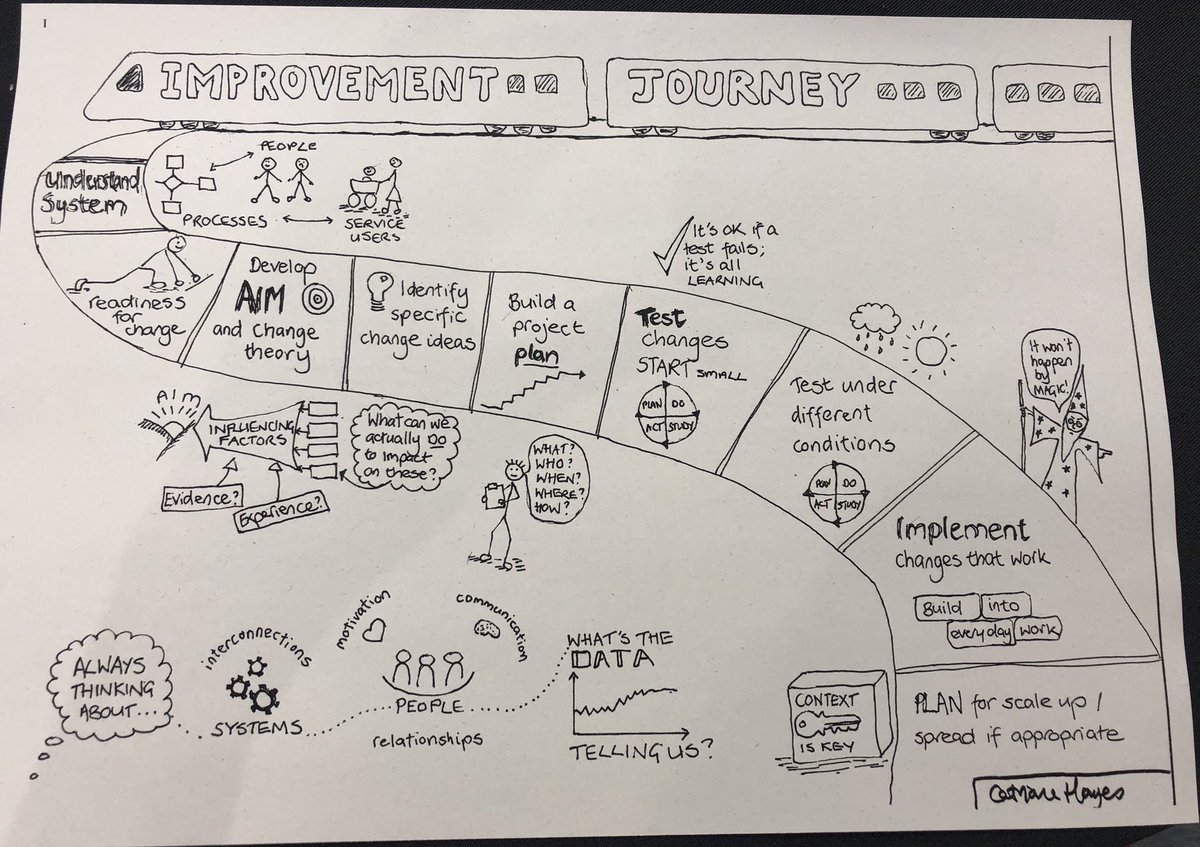 IMPROVEMENT JOURNEY
understand
system
PEOPLE
PROCESSES
SERVICE
USERS
readiness
for
change
Develop
AIM
and change
theory
Identify
specific
change ideas
Build a
project
plan
It's OK if a
test fails;
it's all
LEARNING
Test
changes
START SMALL
PLAN DO
ACT STUDY
Test under
different
conditions
PLAN DO
ACT STUDY
It won't
happen
by
MAGIC!
Implement
changes that work
Build into
everyday work
PLAN for scale up /
spread if appropriate
AIM
INFLUENCING
FACTORS
Evidence?
Experience?
What can we
actually DO
to impact
on these?
WHAT?
WHO?
WHEN?
WHERE?
HOW?
ALWAYS
THINKING
ABOUT...
interconnections
SYSTEMS
motivation
communication
PEOPLE
relationships
WHAT'S THE
DATA
TELLING US?
CONTEXT
IS KEY
Hayes